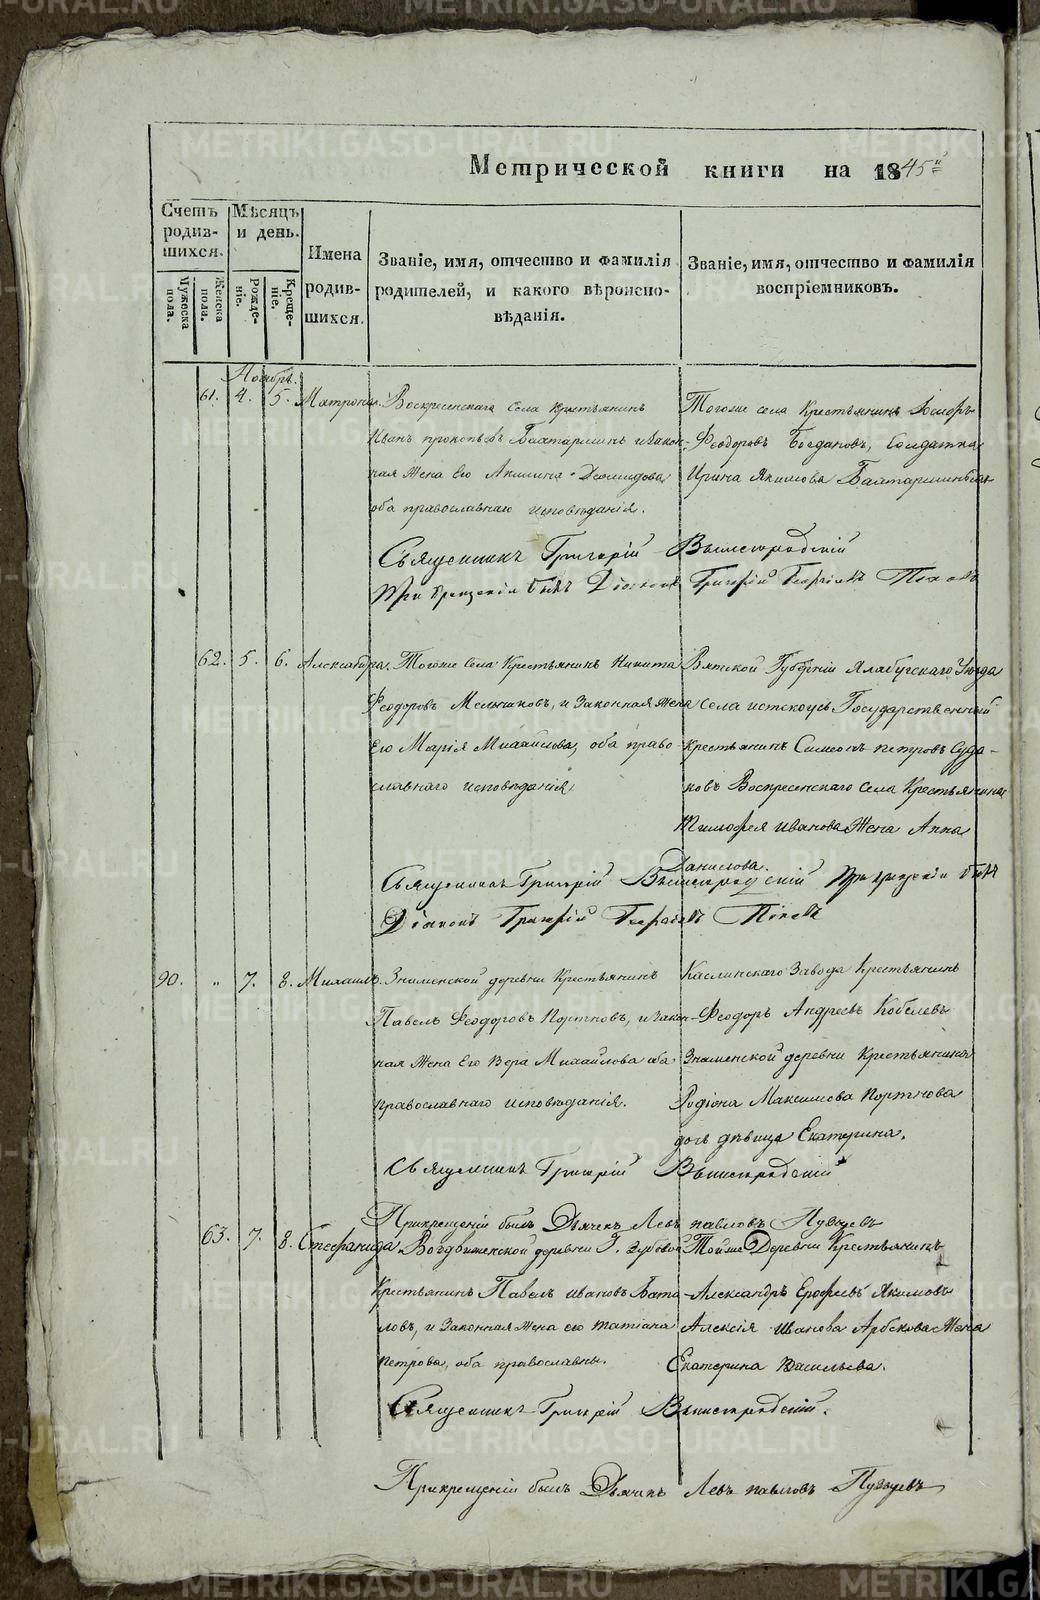 Метрической книги на 1845й
Счетъ родившихся.
Мужеска пола.
Женска пола.
Мѣсяцъ и день.
Рожденіе.
Крещеніе.
Имена родившихся.
Званіе, имя, отчество и фамилія родителей, и какого вѣроисповѣданія.
Званіе, имя, отчество и фамилія воспріемниковъ.
Ноябрь.
61. 4. 5. Матрона. Воскресенскаго Села крестьянинъ
Иванъ прокопьевъ Бахтаринъ и закон-
ная Жена Его Акилина Деомидова
оба православнаго исповѣданія.
Тогоже села Крестьянинъ
Феодоровъ Богдановъ, Солдатка
Ирина Якимова
Священникъ Григорій Вышегородскій
При крещеніи былъ Діаконъ Григорій Георгіевъ Поповъ
62. 5. 6. Александра. Тогоже Села Крестьянинъ Никита
Феодоровъ Мельниковъ, и Законная Жена
Его Марія Михайлова, оба право-
славнаго исповѣданія
Вятской Губерніи Алабугскаго Уѣзда
села Государственный
крестьянинъ Симеонъ петровъ Суда-
ковъ Воскресенскаго Села Крестьянина
Тимофея Иванова Жена Анна
Данилова.
Священникъ Григорій Вышегородскій При крещеніи былъ
Діаконъ Григорій Георгіевъ Поповъ
90. „ 7. 8. Михаилъ. Знаменской деревни Крестьянинъ
Павелъ Феодоровъ Портновъ, и закон-
ная Жена Его Вера Михайлова оба
православнаго исповѣданія.
Каслинскаго Завода Крестьянинъ
Феодоръ Андреевъ Кобелевъ
Знаменской деревни Крестьянина
Родіона Максимова Портнова
дочь дѣвица Екатерина.
Священникъ Григорій Вышегородскій
При крещеніи былъ Дьячекъ Левъ павловъ
63. 7. 8. Стефанида Воздвиженской деревни
Крестьянинъ Павелъ ивановъ Бата-
ловъ, и Законная Жена его татіана
петрова, оба православны.
Тойже Деревни Крестьянинъ
Александръ Ерофеевъ Якимовъ
Алексія Иванова Жена
Екатерина Васильева.
Священникъ Григорій Вышегородскій.
При крещеніи былъ Дьячекъ Левъ павловъ
METRIKI.GASO-URAL.RU